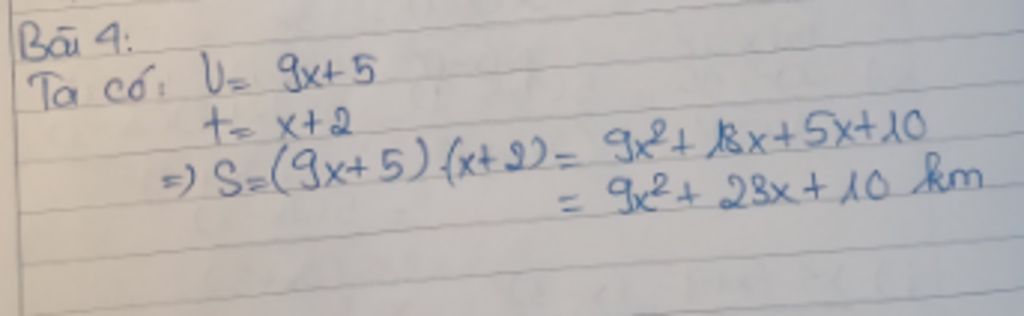 Bài 4:
Ta có: V= 9x+5
t= x+2
=) S=(9x+5).(x+2)= 9x²+18x+5x+10
= 9x²+23x+10 km